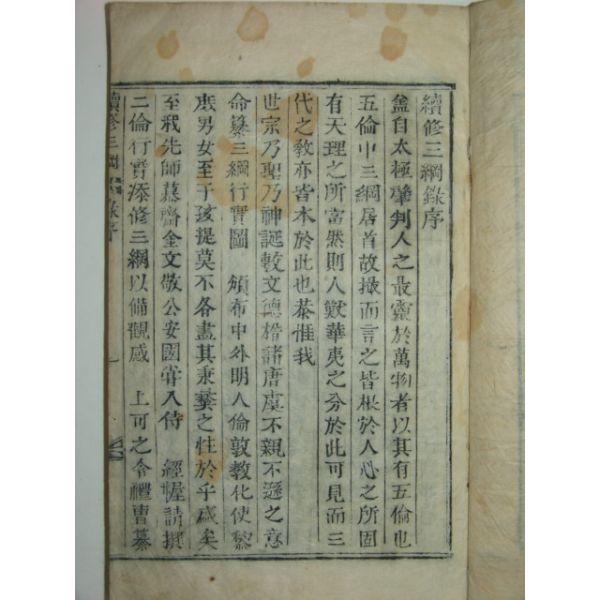 續修三綱錄序
盖自太極肇判人之最靈於萬物者以其有五倫也
五倫中三綱居首故撮而言之皆根於人心之所固
有天理之所當然則人獸華夷之分於此可見而三
代之敎亦皆本於此也恭惟我
世宗乃聖乃神誕敷文德楷諸唐虞不親不遜之意
命纂三綱行實圖 頒布中外明人倫敦敎化使黎
庶男女至于孩提莫不各盡其秉彝之性於乎盛矣
至我先師慕齋金文敬公安國甞入侍 經幄請撰
二倫行實添修三綱以備觀感 上可之令禮曹纂
續修三綱錄序